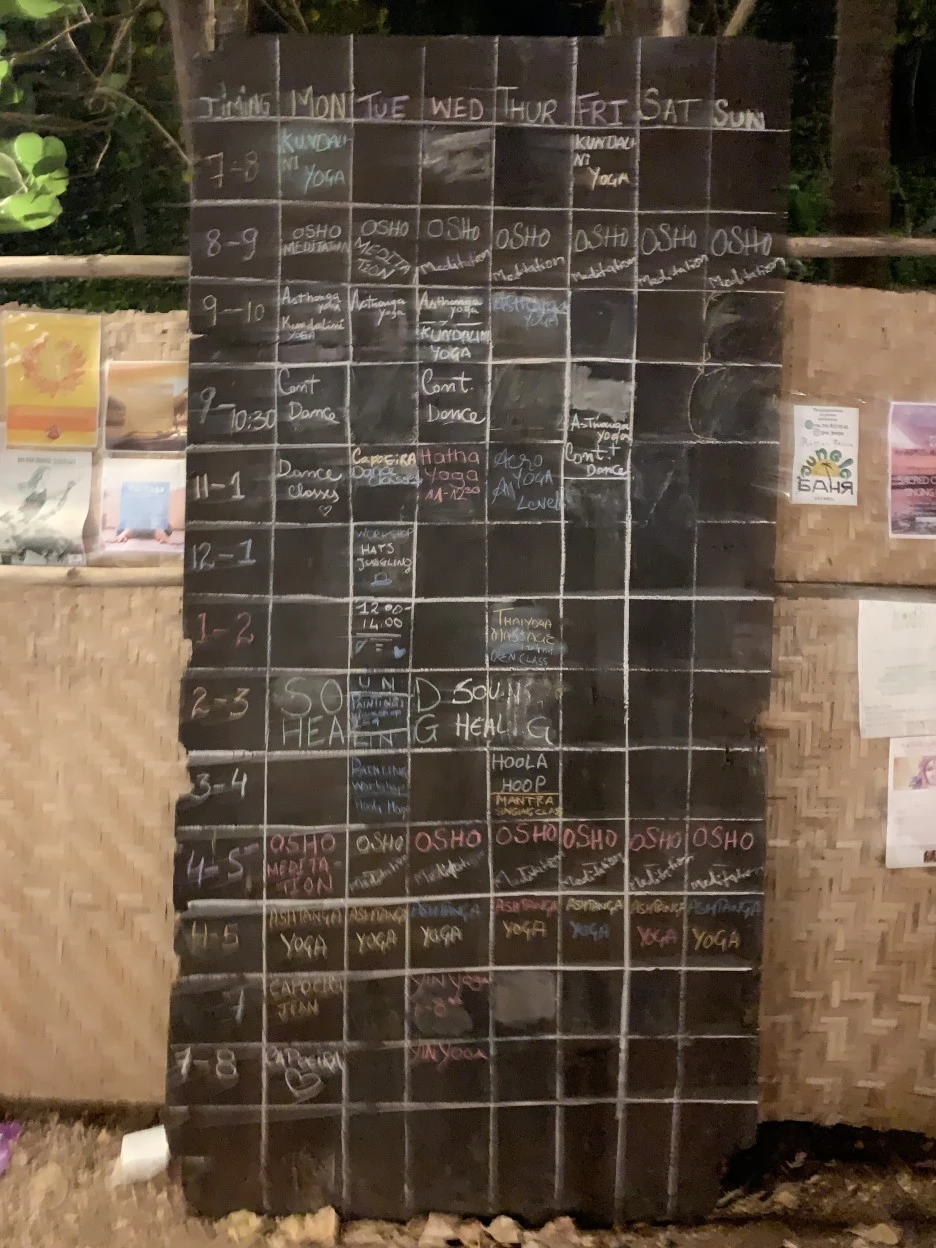 TIMING MON TUE WED THUR FRI SAT SUN
7-8 KUNDALI NI YOGA KUNDALI NI YOGA
8-9 OSHO MEDITATION OSHO MEDITATION OSHO Meditation OSHO Meditation OSHO Meditation OSHO Meditation OSHO Meditation
9-10 Asthanga yoga Kundalini YOGA Asthanga yoga Asthanga yoga KUNDALINI YOGA ASHTANGA YOGA
9-10:30 Cont Dance Cont. Dance Asthanga yoga
11-1 Dance Classes CAPOEIRA Dance Classes Hatha Yoga 11-12:30 Acro YOGA All Level Cont. Dance
12-1 WORKSHOP HATS JUGGLING
1-2 12:00-14:00 THAIYOGA MASSAGE OPEN CLASS
2-3 SOUND HEALING SOUN HEALI G PAINTING Workshop
3-4 Workshop HOOLA HOOP MANTRA SINGING CLASS
4-5 OSHO MEDITATION OSHO Meditation OSHO Meditation OSHO Meditation OSHO Meditation OSHO Meditation OSHO Meditation
4-5 ASHTANGA YOGA ASHTANGA YOGA ASHTANGA YOGA ASHTANGA YOGA ASHTANGA YOGA ASHTANGA YOGA ASHTANGA YOGA
7 YIN YOGA
7-8 CAPOEIRA YIN YOGA
Jungle
БАНЯ